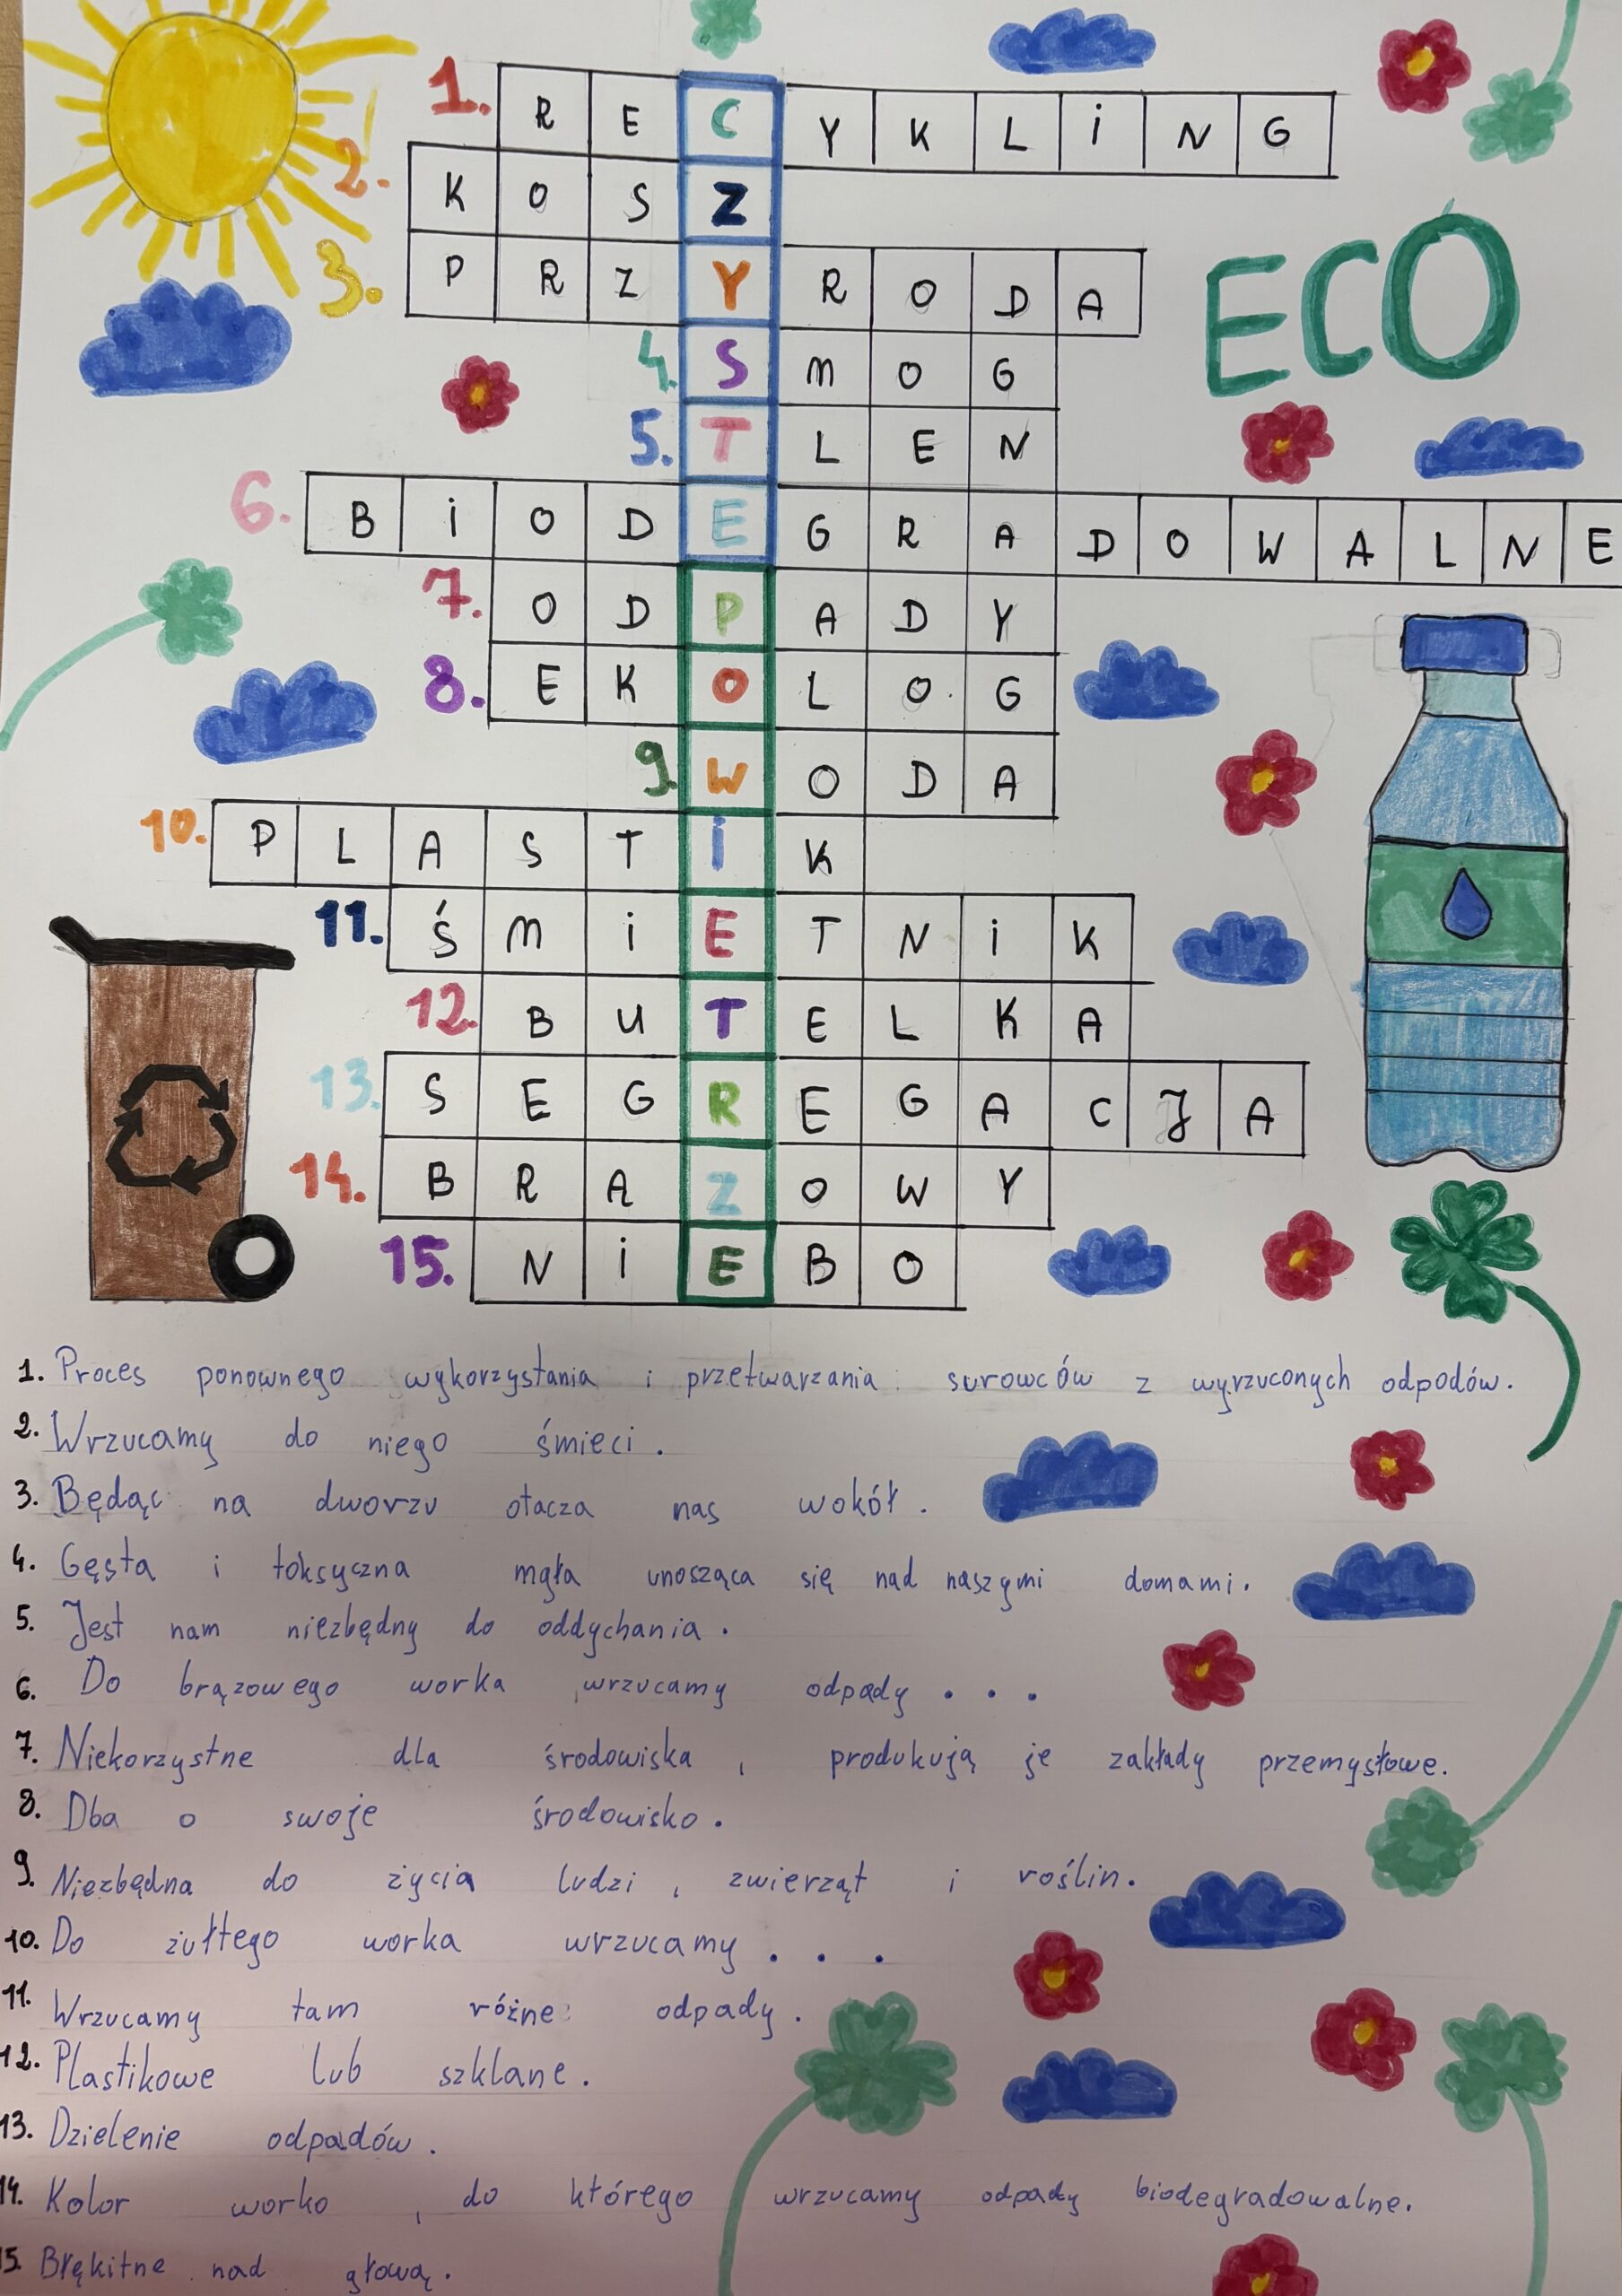 1. RECYKLiNG
2. KOSZ
3. PRZYRODA
ECO
4. SMOG
5. TLEN
6. BiODEGRADOWALNE
7. ODPADY
8. EKOLOG
9. WODA
10. PLASTiK
11. ŚMiETNiK
12. BUTELKA
13. SEGREGACJA
14. BRĄZOWY
15. NiEBO
1. Proces ponownego wykorzystania i przetwarzania surowców z wyrzuconych odpodów.
2. Wrzucamy do niego śmieci.
3. Będąc na dworzu otacza nas wokół.
4. Gęsta i toksyczna mgła unosząca się nad naszymi domami.
5. Jest nam niezbędny do oddychania.
6. Do brązowego worka wrzucamy odpady . . .
7. Niekorzystne dla środowiska, produkują je zakłady przemysłowe.
8. Dba o swoje środowisko.
9. Niezbędna do życia ludzi, zwierząt i roślin.
10. Do żułtego worka wrzucamy . . .
11. Wrzucamy tam różne odpady.
12. Plastikowe lub szklane.
13. Dzielenie odpadów.
14. Kolor worko, do którego wrzucamy odpady biodegradowalne.
15. Błękitne nad głową.